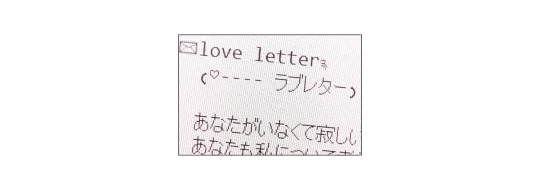 ✉love letter
(♡---- ラブレター)
あなたがいなくて寂しい
あなたも私について